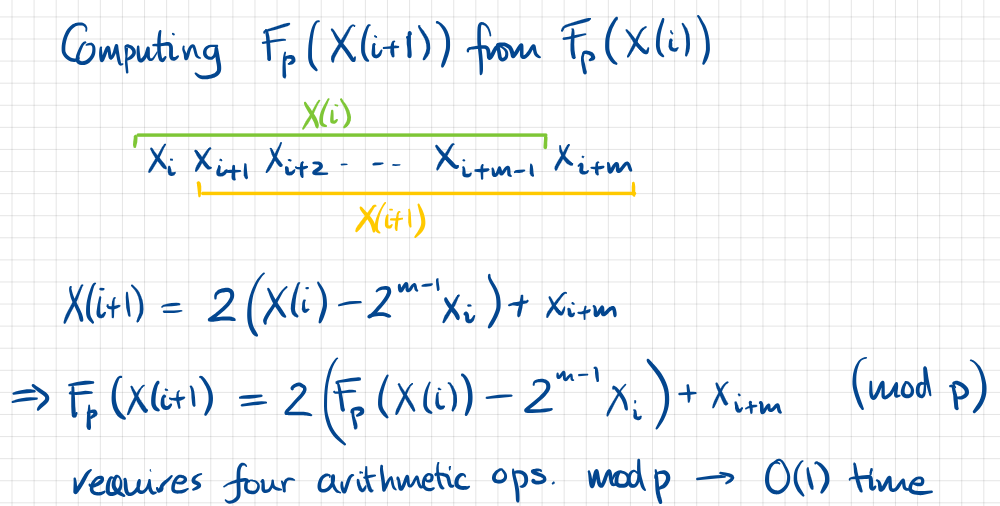 Computing F_p(X(i+1)) from F_p(X(i))
X(i)
x_i x_{i+1} x_{i+2} - -- x_{i+m-1} x_{i+m}
X(i+1)
X(i+1) = 2(X(i) - 2^{m-1} x_i) + x_{i+m}
⇒ F_p(X(i+1) = 2(F_p(X(i)) - 2^{m-1} x_i) + x_{i+m} (mod p)
requires four arithmetic ops. mod p → O(1) time